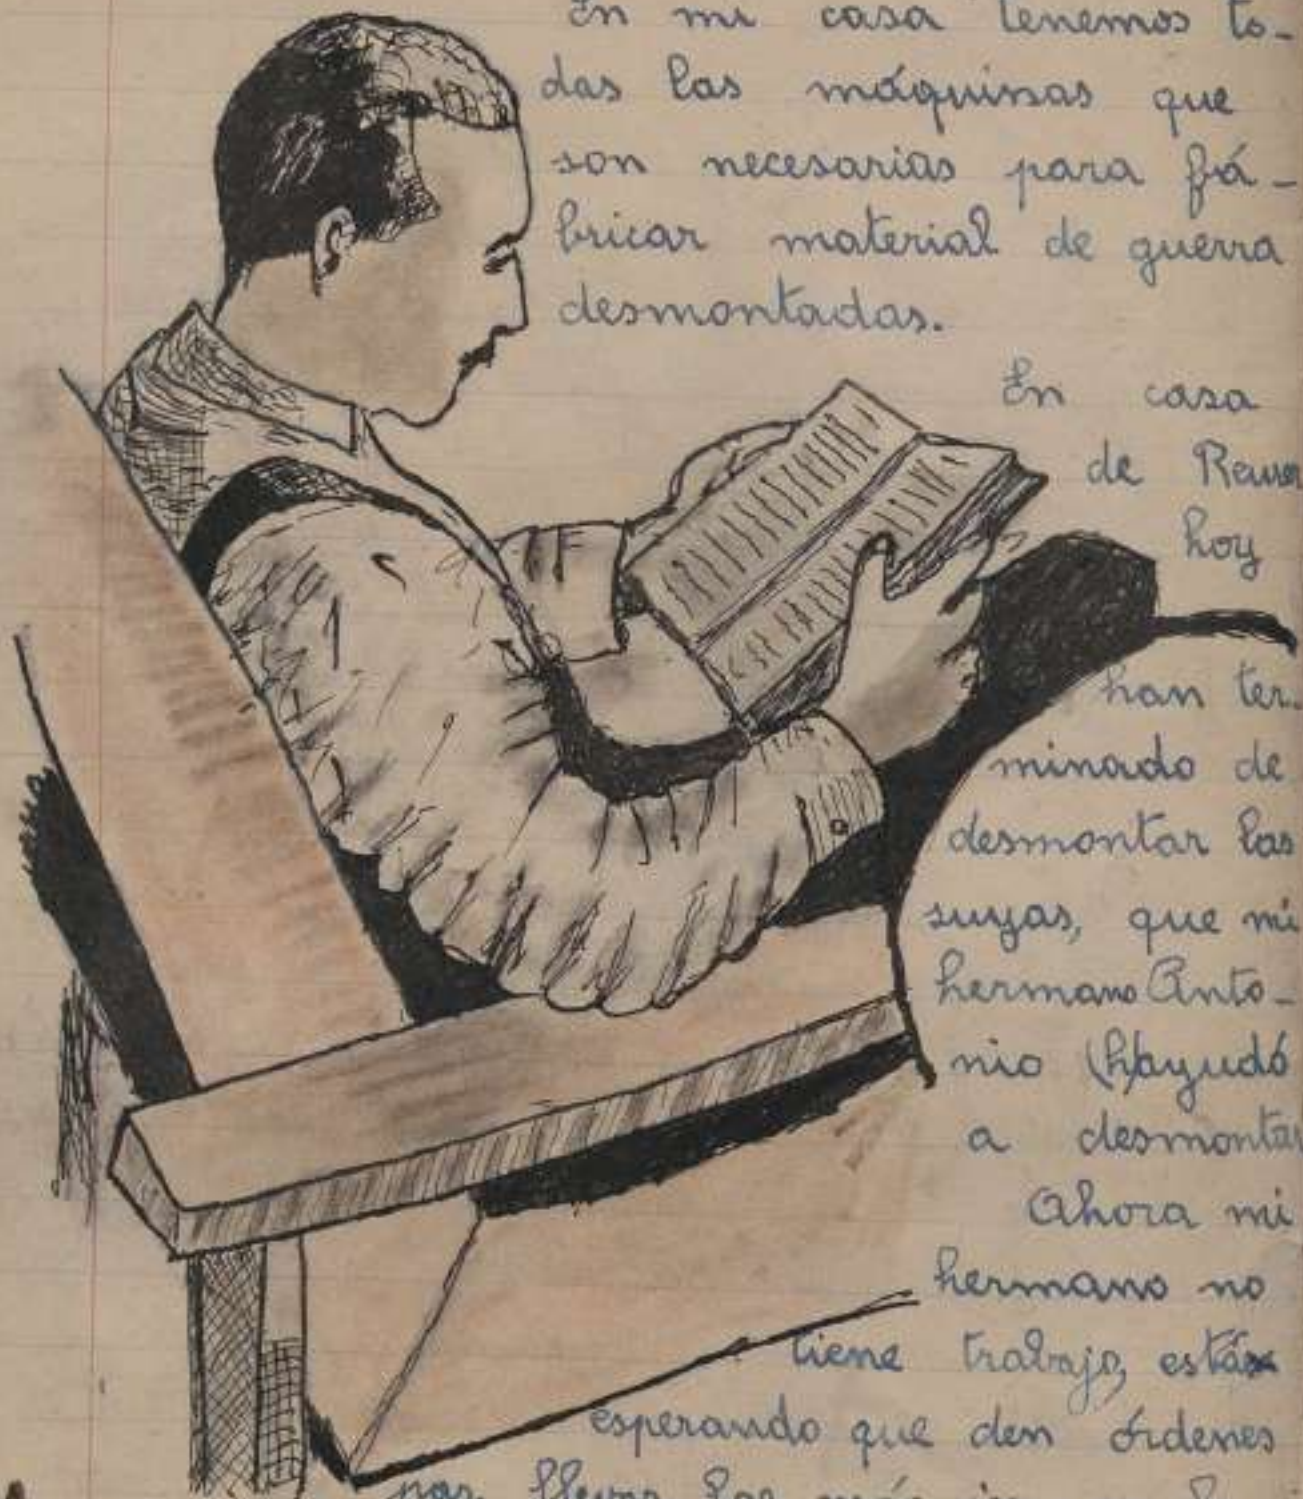 En mi casa tenemos to-
das las máquinas que
son necesarias para fá-
bricar material de guerra
desmontadas.
En casa
de
hoy
han ter-
minado de
desmontar las
suyas, que mi
hermano Anto-
nio (h)ayudó
a desmontar
Ahora mi
hermano no
tiene trabajo, está
esperando que den órdenes
por llevar las